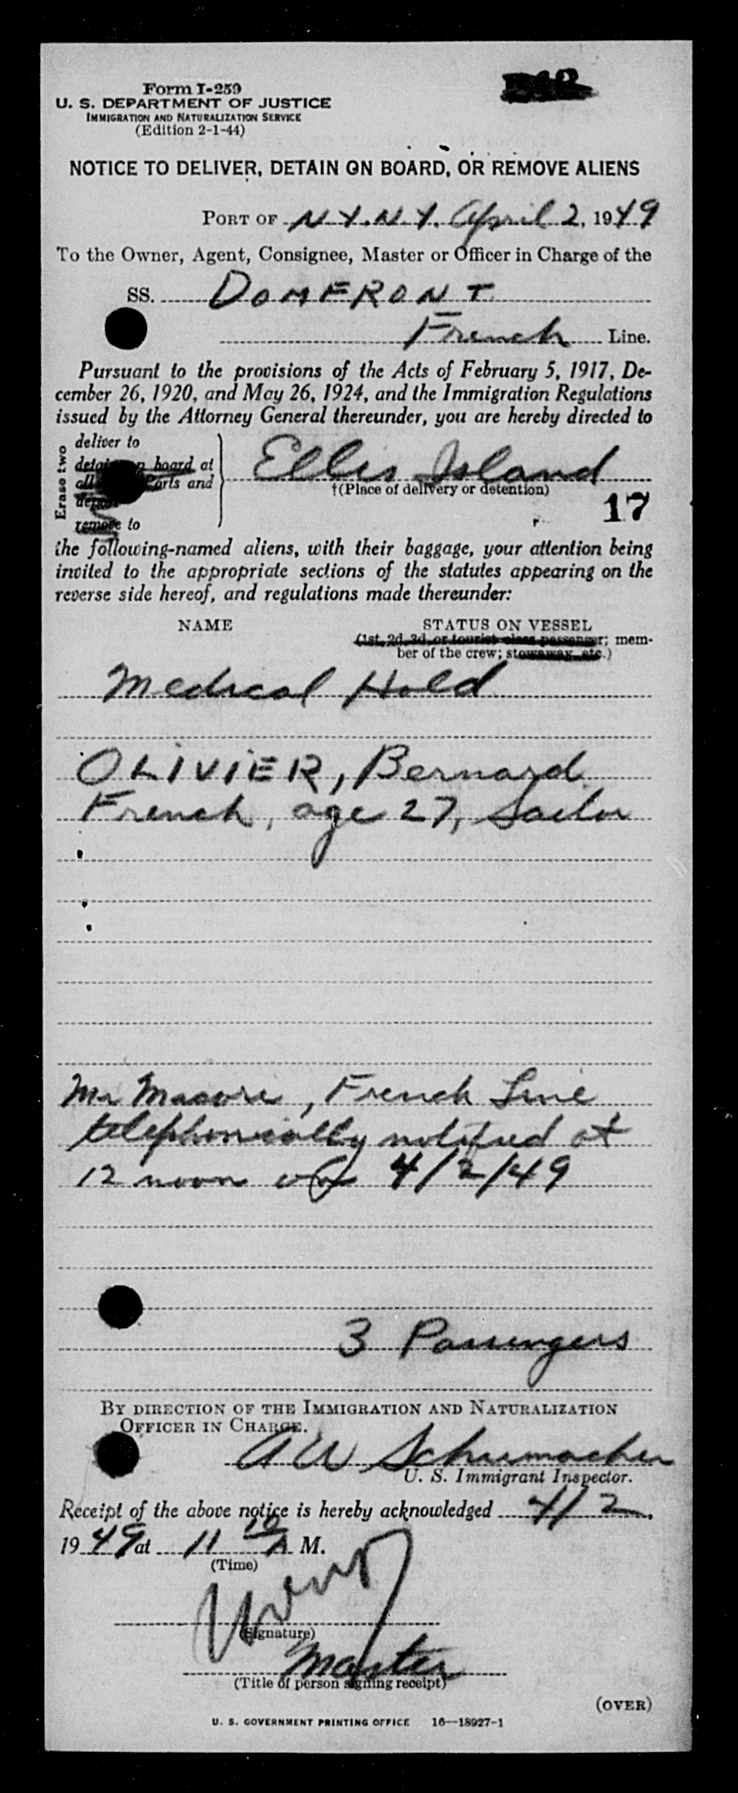 Form I-259
U. S. DEPARTMENT OF JUSTICE
IMMIGRATION AND NATURALIZATION SERVICE
(Edition 2-1-44)
NOTICE TO DELIVER, DETAIN ON BOARD, OR REMOVE ALIENS
PORT OF N.Y.N.Y. April 2, 1949
To the Owner, Agent, Consignee, Master or Officer in Charge of the
SS. DOMFRONT
French Line.
Pursuant to the provisions of the Acts of February 5, 1917, De-
cember 26, 1920, and May 26, 1924, and the Immigration Regulations
issued by the Attorney General thereunder, you are hereby directed to
Erase two
deliver to
detain on board at
all ports and
remove to
Ellis Island
†(Place of delivery or detention)
17
the following-named aliens, with their baggage, your attention being
invited to the appropriate sections of the statutes appearing on the
reverse side hereof, and regulations made thereunder:
NAME STATUS ON VESSEL
(1st, 2d, 3d, or tourist class passenger; mem-
ber of the crew; stowaway, etc.)
Medical Hold
OLIVIER, Bernard
French, age 27, Sailor
Mr , French Line
telephonically notified at
12 noon on 4/2/49
3 Passengers
BY DIRECTION OF THE IMMIGRATION AND NATURALIZATION
OFFICER IN CHARGE.
A W Schumacher
U. S. Immigrant Inspector.
Receipt of the above notice is hereby acknowledged 4/2,
1949 at 11 10 A M.
(Time)
(Signature)
Master
(Title of person signing receipt)
(OVER)
U. S. GOVERNMENT PRINTING OFFICE 16—18927-1